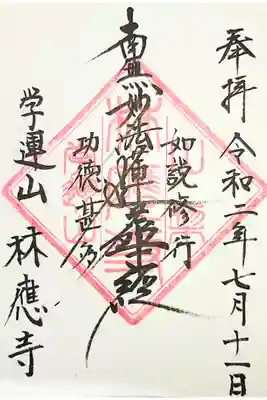 奉拝 令和二年七月十一日
如説修行
南無妙法蓮華経
功徳甚多
学運山 林應寺